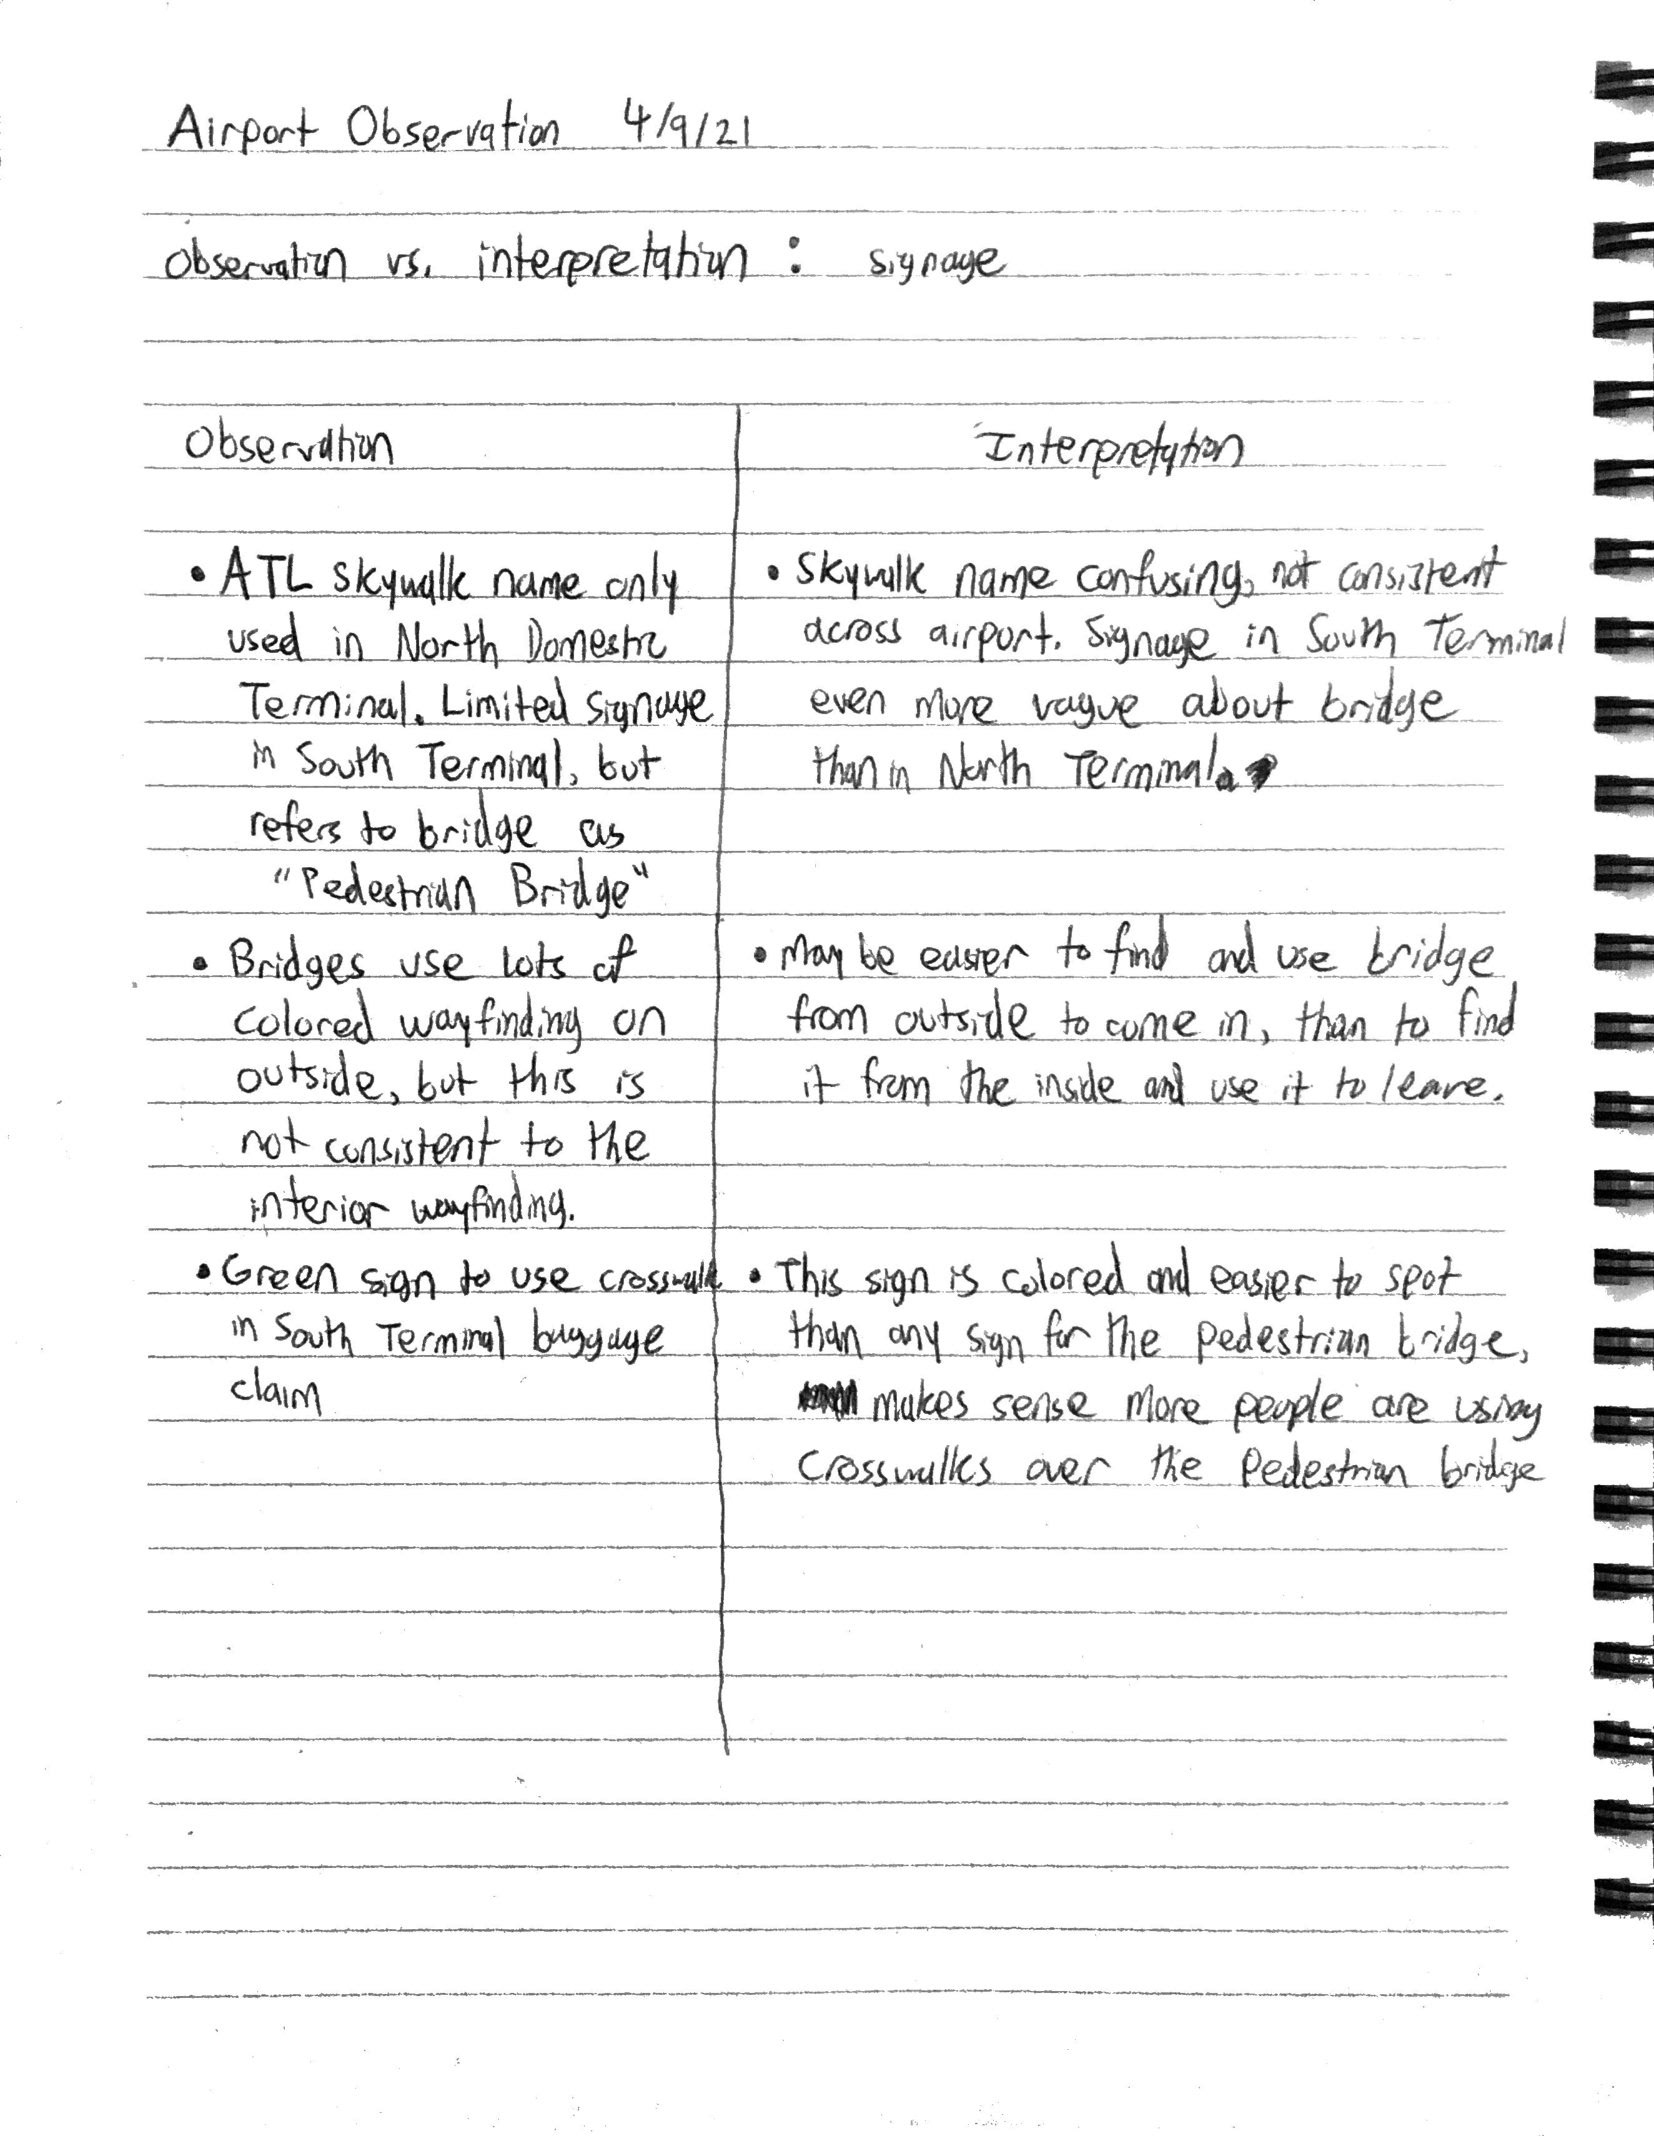 Airport Observation 4/9/21
Observation vs. interpretation : signage
Observation
• ATL skywalk name only
used in North Domestic
Terminal. Limited signage
in South Terminal, but
refers to bridge as
"Pedestrian Bridge"
• Bridges use lots of
colored wayfinding on
outside, but this is
not consistent to the
interior wayfinding.
• Green sign to use crosswalk
in South Terminal baggage
claim
Interpretation
• Skywalk name confusing, not consistent
across airport. Signage in South Terminal
even more vague about bridge
than in North Terminal.
• May be easier to find and use bridge
from outside to come in, than to find
it from the inside and use it to leave.
• This sign is colored and easier to spot
than any sign for the pedestrian bridge,
makes sense more people are using
crosswalks over the pedestrian bridge